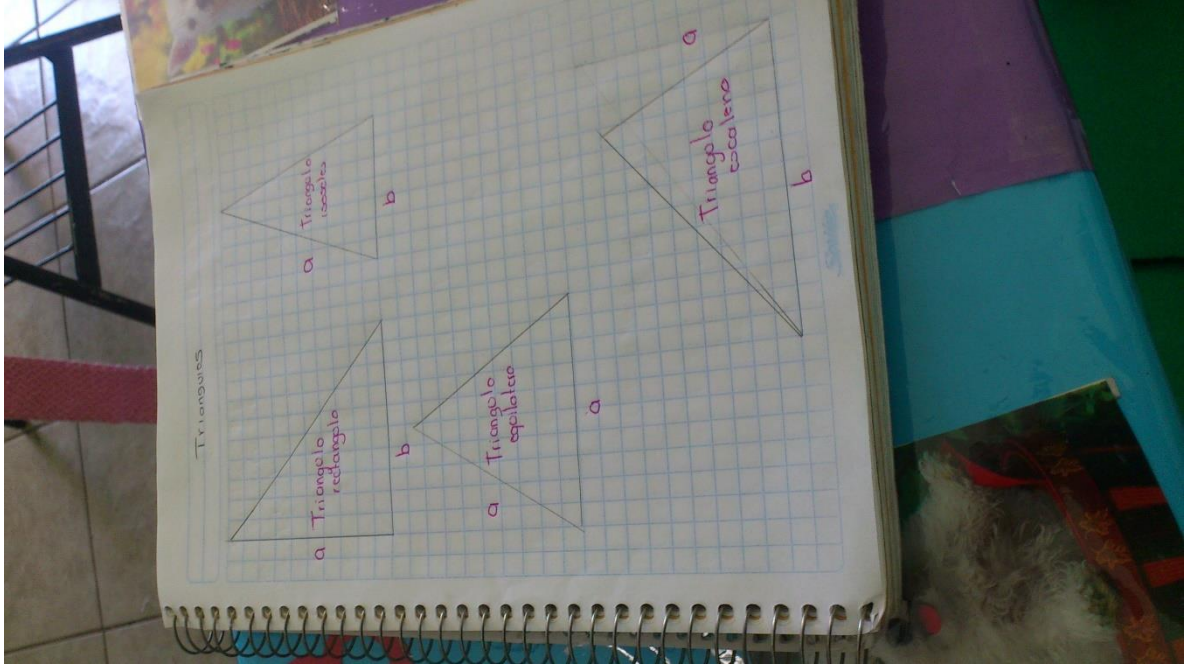 Triangulos
a
Triangulo
rectangulo
b
a
Triangulo
isosceles
b
a
Triangulo
equilatero
a
a
Triangulo
escaleno
b